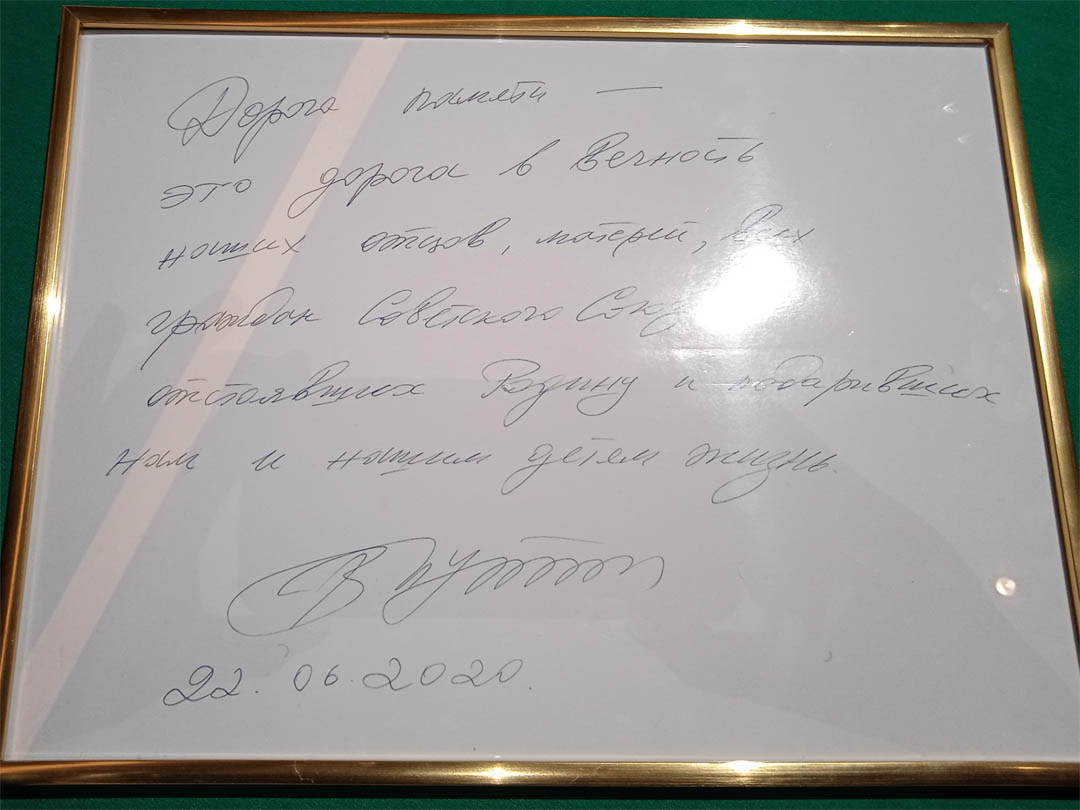 Дорога памяти —
это дорога в Вечность
наших отцов, матерей, всех
граждан Советского Союза
отстоявших Родину и подаривших
нам и нашим детям жизнь.
В Путин
22.06.2020.